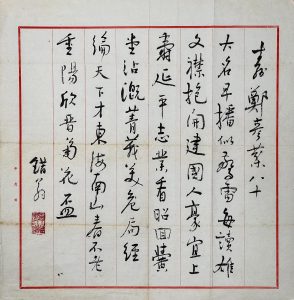 壽鄭彥棻八十
大名早播似驚雷每讀雄
文襟抱開建國人豪宜上
壽延平志業看昭回黌
堂沾溉菁莪美危局經
綸天下才東海南山春不老
重陽欣晉菊花盃
錯翁